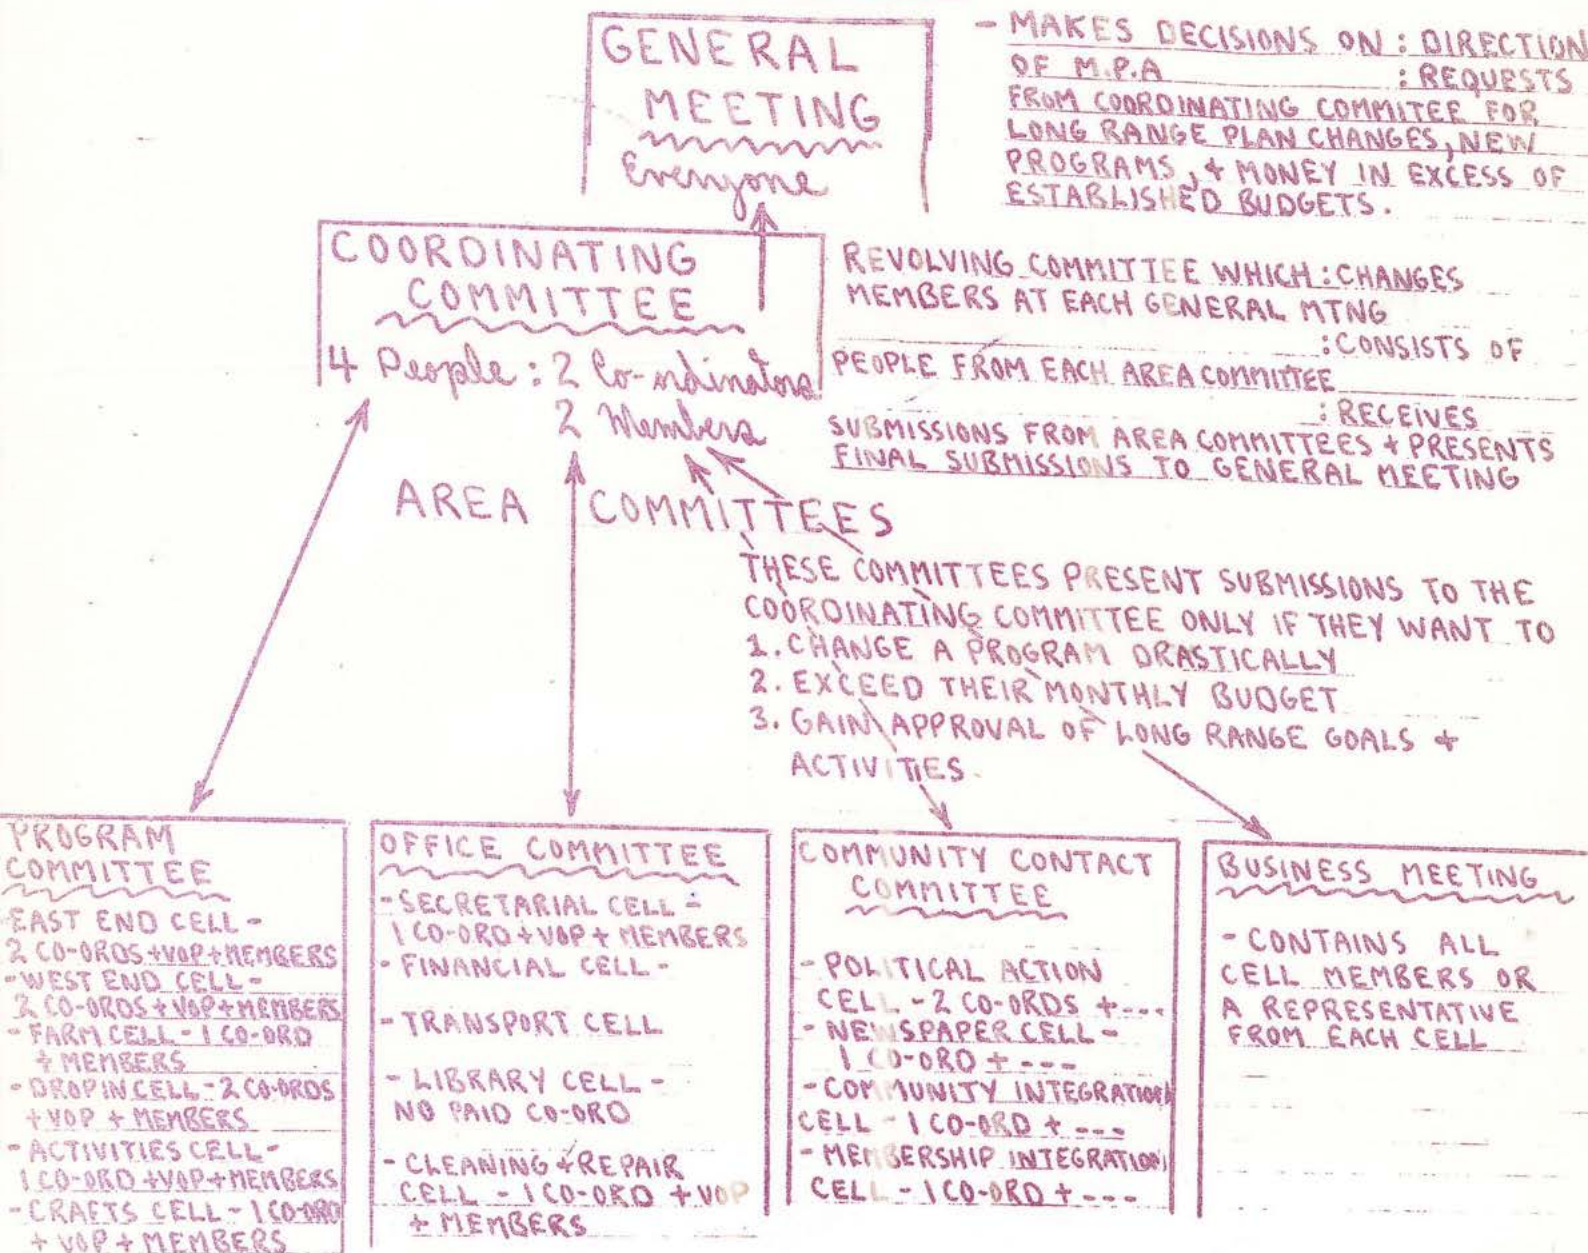 GENERAL
MEETING
Everyone
- MAKES DECISIONS ON : DIRECTION
OF M.P.A : REQUESTS
FROM COORDINATING COMMITEE FOR
LONG RANGE PLAN CHANGES, NEW
PROGRAMS, + MONEY IN EXCESS OF
ESTABLISHED BUDGETS.
COORDINATING
COMMITTEE
4 People : 2 Co-ordinators
2 Members
REVOLVING COMMITTEE WHICH : CHANGES
MEMBERS AT EACH GENERAL MTNG
: CONSISTS OF
PEOPLE FROM EACH AREA COMMITTEE
: RECEIVES
SUBMISSIONS FROM AREA COMMITTEES + PRESENTS
FINAL SUBMISSIONS TO GENERAL MEETING
AREA COMMITTEES
THESE COMMITTEES PRESENT SUBMISSIONS TO THE
COORDINATING COMMITTEE ONLY IF THEY WANT TO
1. CHANGE A PROGRAM DRASTICALLY
2. EXCEED THEIR MONTHLY BUDGET
3. GAIN APPROVAL OF LONG RANGE GOALS +
ACTIVITIES.
PROGRAM
COMMITTEE
EAST END CELL -
2 CO-ORDS + VOP + MEMBERS
- WEST END CELL -
2 CO-ORDS + VOP + MEMBERS
- FARM CELL - 1 CO-ORD
+ MEMBERS
- DROP IN CELL - 2 CO-ORDS
+ VOP + MEMBERS
- ACTIVITIES CELL -
1 CO-ORD + VOP + MEMBERS
- CRAFTS CELL - 1 CO-ORD
+ VOP + MEMBERS
OFFICE COMMITTEE
- SECRETARIAL CELL -
1 CO-ORD + VOP + MEMBERS
- FINANCIAL CELL -
- TRANSPORT CELL
- LIBRARY CELL -
NO PAID CO-ORD
- CLEANING + REPAIR
CELL - 1 CO-ORD + VOP
+ MEMBERS
COMMUNITY CONTACT
COMMITTEE
- POLITICAL ACTION
CELL - 2 CO-ORDS + ---
- NEWSPAPER CELL -
1 CO-ORD + ---
- COMMUNITY INTEGRATION
CELL - 1 CO-ORD + ---
- MEMBERSHIP INTEGRATION
CELL - 1 CO-ORD + ---
BUSINESS MEETING
- CONTAINS ALL
CELL MEMBERS OR
A REPRESENTATIVE
FROM EACH CELL